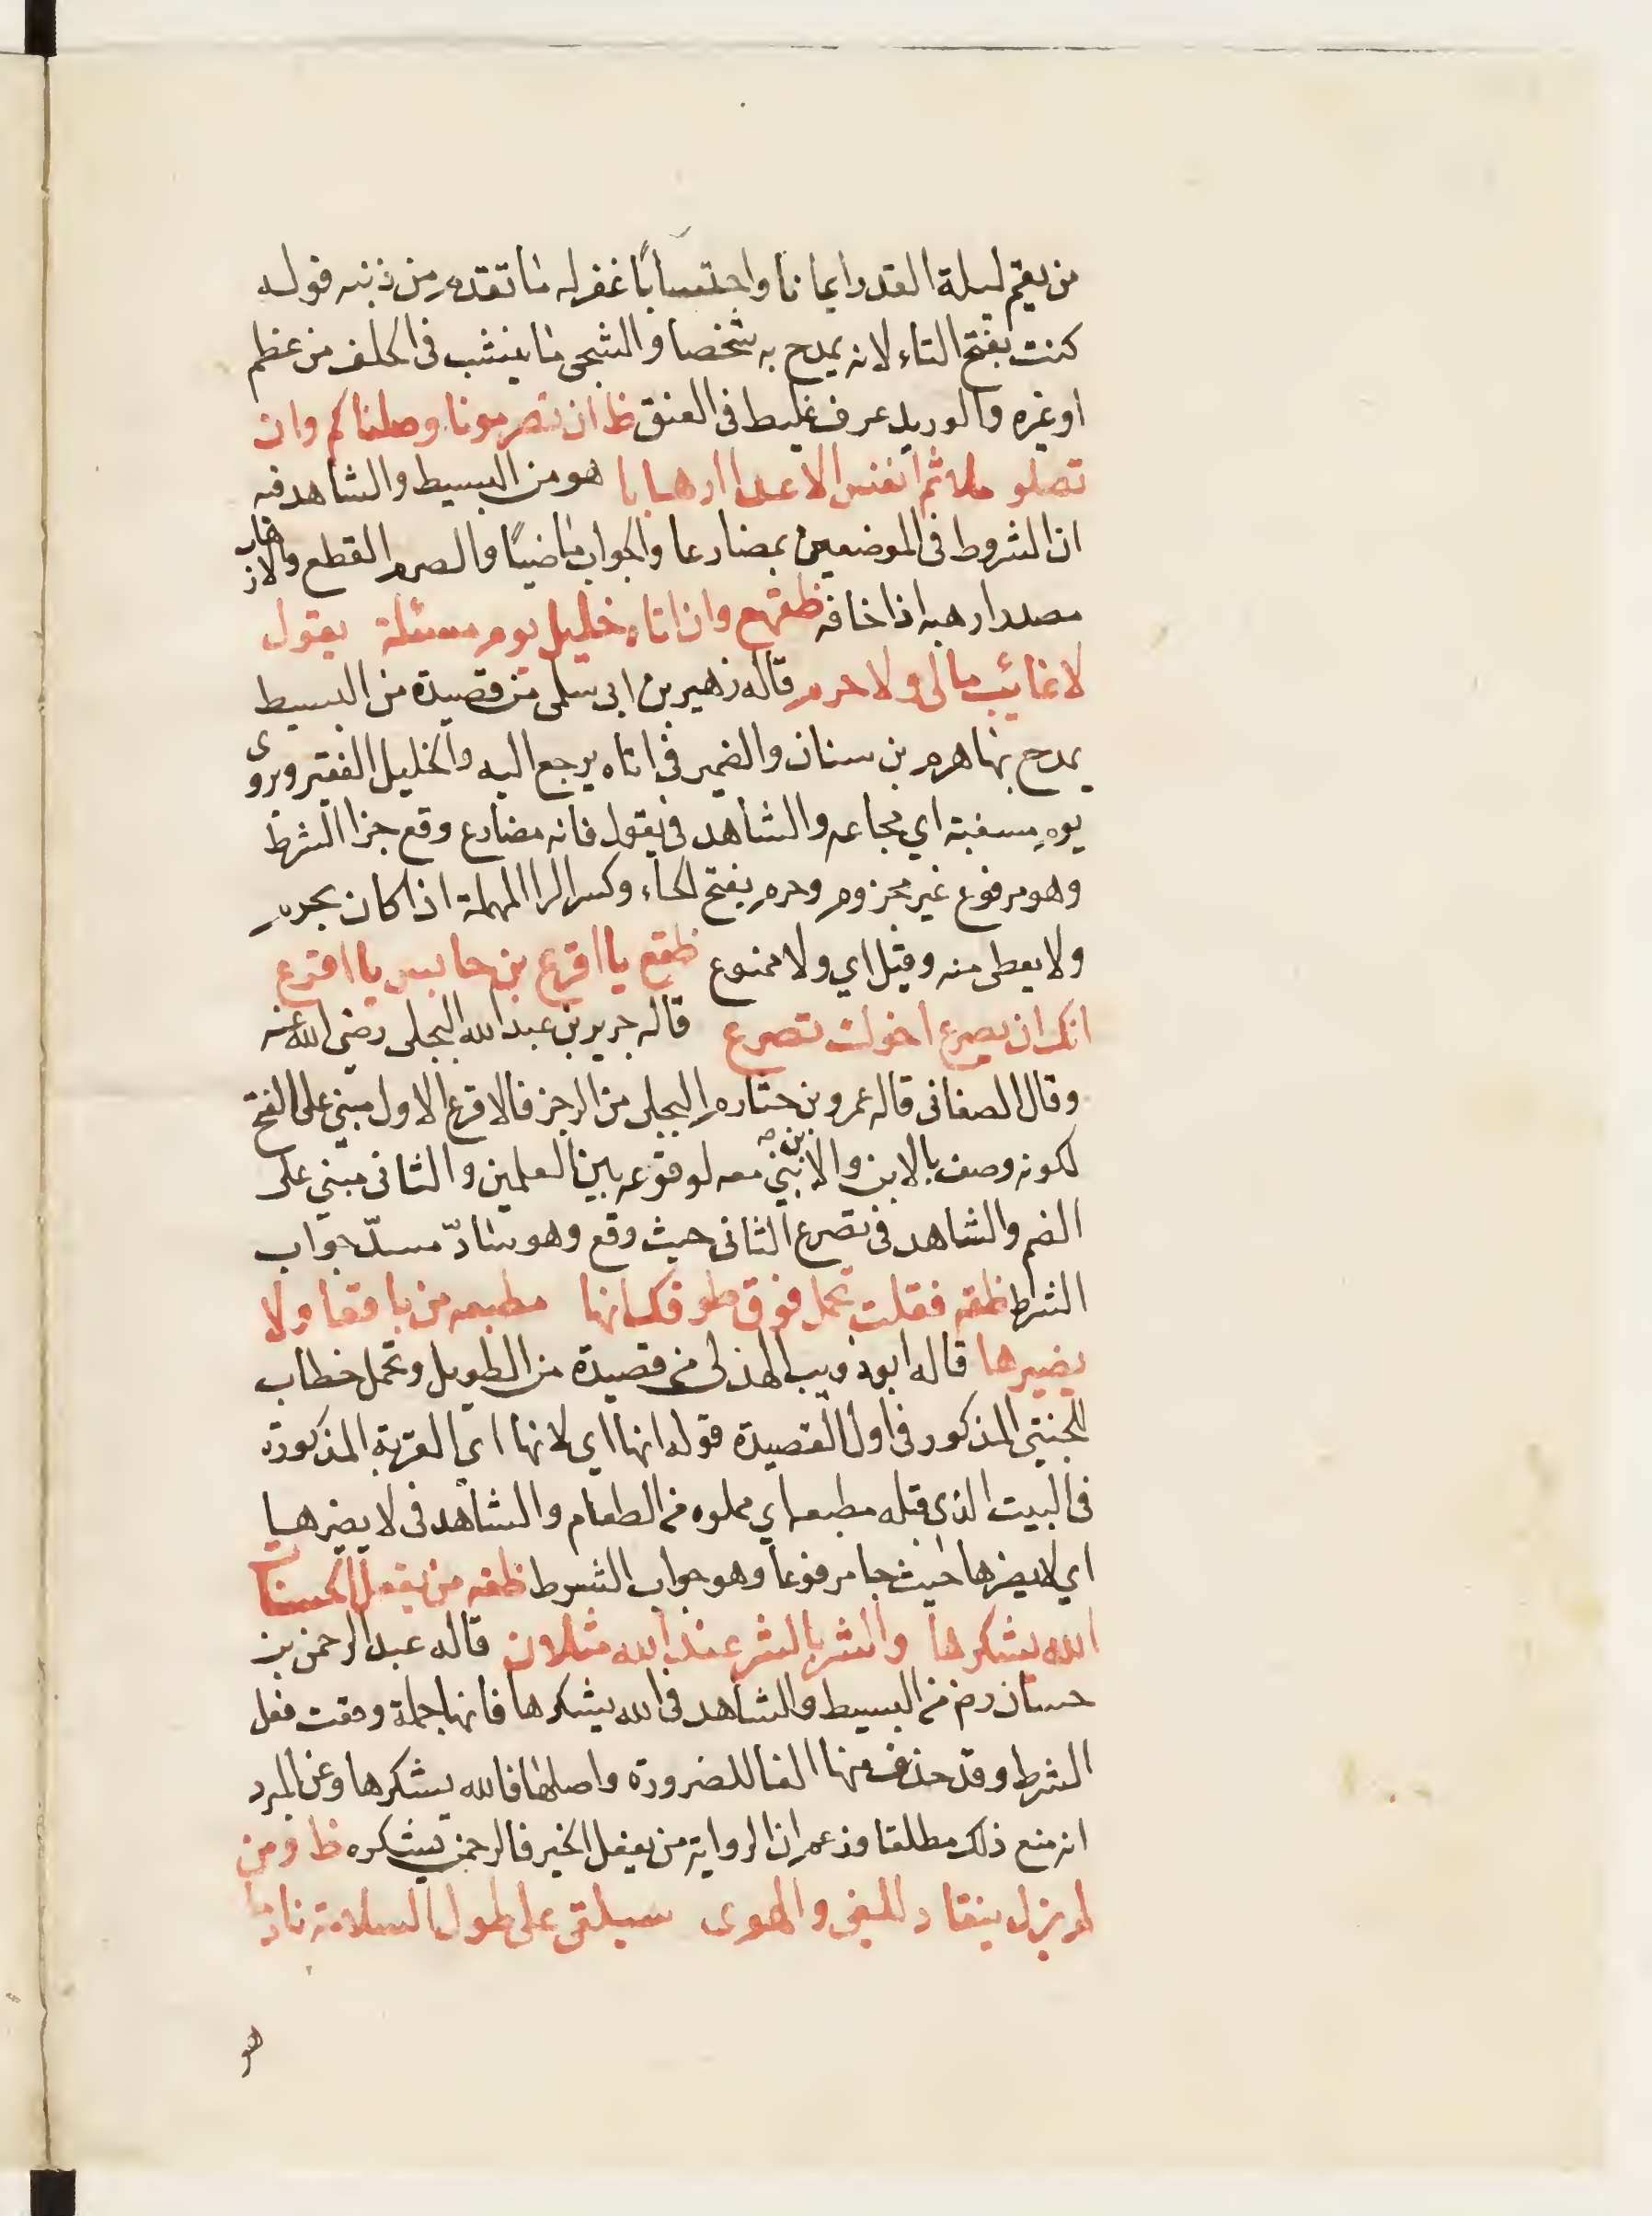 من يقم ليلة القدر ايمانا واحتسابًا غفر له ما تقدم من ذنبه قوله
كنت بفتح التاء لانه يمدح به شخصا والشجى ما ينشب فى الحلق من عظم
او غيره والوريد عرف غليط فى العنق ظ ان تصرمونا وصلناكم وان
تصلو ملاتم انفس الاعدا ارهابا هو من البسيط والشاهد فيه
ان الشروط فى الموضعين بمضارعا والجواب ماضيًا والصرم القطع والارهاب
مصدر ارهبه اذا خافه ظقهع وان اتاه خليل يوم مسئلة يقول
لا غائب مالى ولا حرم قاله زهير بن ابى سلمى من قصيدة من البسيط
يمدح بها هرم بن سنان والضمير فى اتاه يرجع اليه والخليل الفقير ويروى
يوم مسغبة اي مجاعه والشاهد فى يقول فانه مضارع وقع جزا الشرط
وهو مرفوع غير مجزوم وحرم بفتح الحاء وكسر الرا المهملة اذا كان يحرم
ولا يعطى منه وقيل اي ولا ممنوع ظقع يا اقرع بن حابس يا اقرع
انك ان يصرع اخوك تصرع قاله جرير بن عبد الله البجلى رضى الله عنه
وقال الصغانى قاله عمرو بن حثارم البجلى من الرجز فالاقرع الاول مبنى على الفتح
لكونه وصف بالابن والابن بنى معه لوقوعه بين العلمين والثانى مبني على
الضم والشاهد فى تصرع الثانى حيث وقع وهو سادّ مسدّ جواب
الشرط ظقه فقلت تحمل فوق طوقك انها مطبعه من ياتها ولا
يضيرها قاله ابو ذويب الهذلى من قصيدة من الطويل وتحمل خطاب
للجنتى المذكور فى اول القصيدة قوله انها اي لانها اي القرية المذكورة
فى البيت الذى قبله مطبعه اي مملوه من الطعام والشاهد فى لا يضرها
اي لا يضرها حيث جا مرفوعا وهو جواب الشرط ظقه من يفعل الحسنات
الله يشكرها والشر بالشر عند الله مثلان قاله عبد الرحمن بن
حسان رض من البسيط والشاهد فى الله يشكرها فانها جملة وقعت فعل
الشرط وقد حذف منها الفا للضرورة واصلها فالله يشكرها وعن المبرد
انه منع ذلك مطلقا وزعم ان الرواية من يفعل الخير فالرحمن يشكره ظ ومن
لم يزل ينقاد للغى والهوى سيلقى على طول السلامة نادما
هو